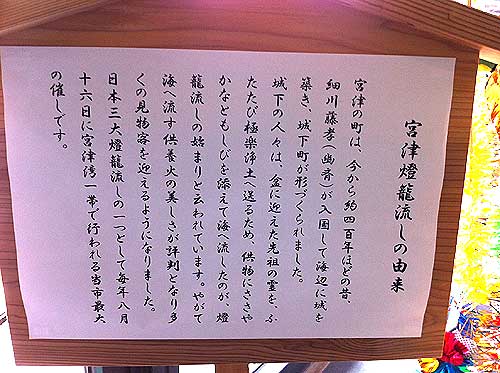 宮津燈籠流しの由来
宮津の町は、今から約四百年ほどの昔、
細川藤孝（幽斉）が入国して海辺に城を
築き、城下町が形づくられました。
城下の人々は、盆に迎えた先祖の霊を、ふ
たたび極楽浄土へ送るため、供物にささや
かなともしびを添えて海へ流したのが、燈
籠流しの始まりと云われています。やがて
海へ流す供養火の美しさが評判となり多
くの見物客を迎えるようになりました。
日本三大燈籠流しの一つとして毎年八月
十六日に宮津湾一帯で行われる当市最大
の催しです。